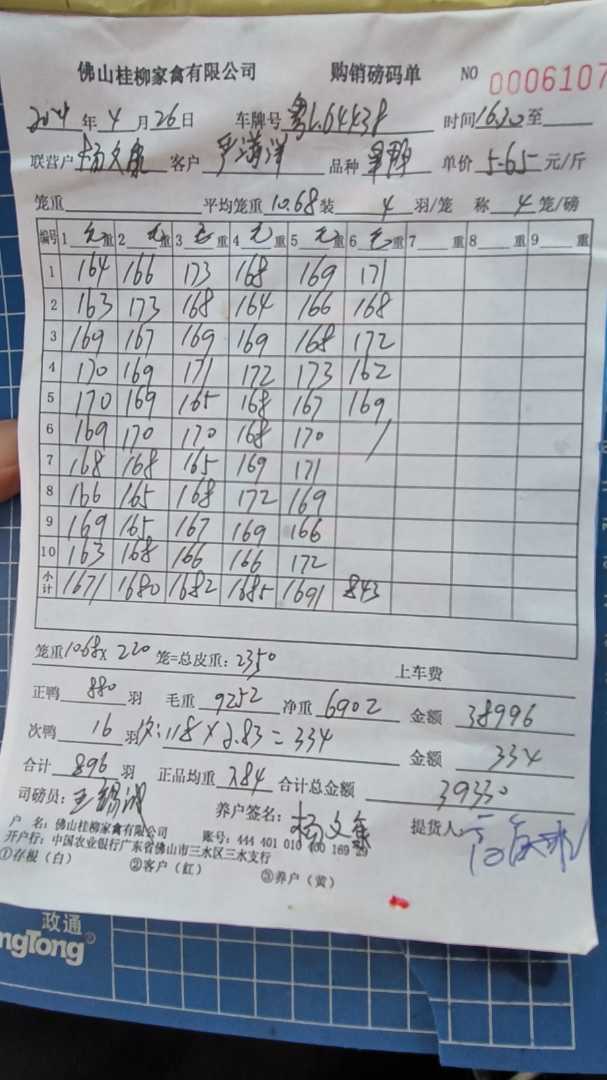 佛山桂柳家禽有限公司 购销磅码单 NO 0006107
2024年4月26日 车牌号粤L64438 时间16:20至
联营户杨文集 客户 严满洋 品种 单价5.65元/斤
笼重 平均笼重10.68装 4 羽/笼 称 4 笼/磅
编号 1 毛重 2 毛重 3 毛重 4 毛重 5 毛重 6 毛重 7 重 8 重 9 重
1 164 166 173 168 169 171
2 163 173 168 164 166 168
3 169 167 169 169 168 172
4 170 169 171 172 173 162
5 170 169 165 168 167 169
6 169 170 170 168 170 /
7 168 168 165 169 171
8 166 165 168 172 169
9 169 165 167 169 166
10 163 168 166 166 172
小计 1671 1680 1682 1685 1691 843
笼重10.68×220笼=总皮重:2350 上车费
正鸭 880 羽 毛重 9252 净重 6902 金额 38996
次鸭 16 羽次:118×2.83=334 金额 334
合计 896 羽 正品均重 7.84 合计总金额 39330
司磅员: 养户签名:杨文集 提货人:
户 名:佛山桂柳家禽有限公司 账号:444 401 010 400 169 29
开户行:中国农业银行广东省佛山市三水区三水支行
①存根(白) ②客户(红) ③养户(黄)
政通
ngTong®